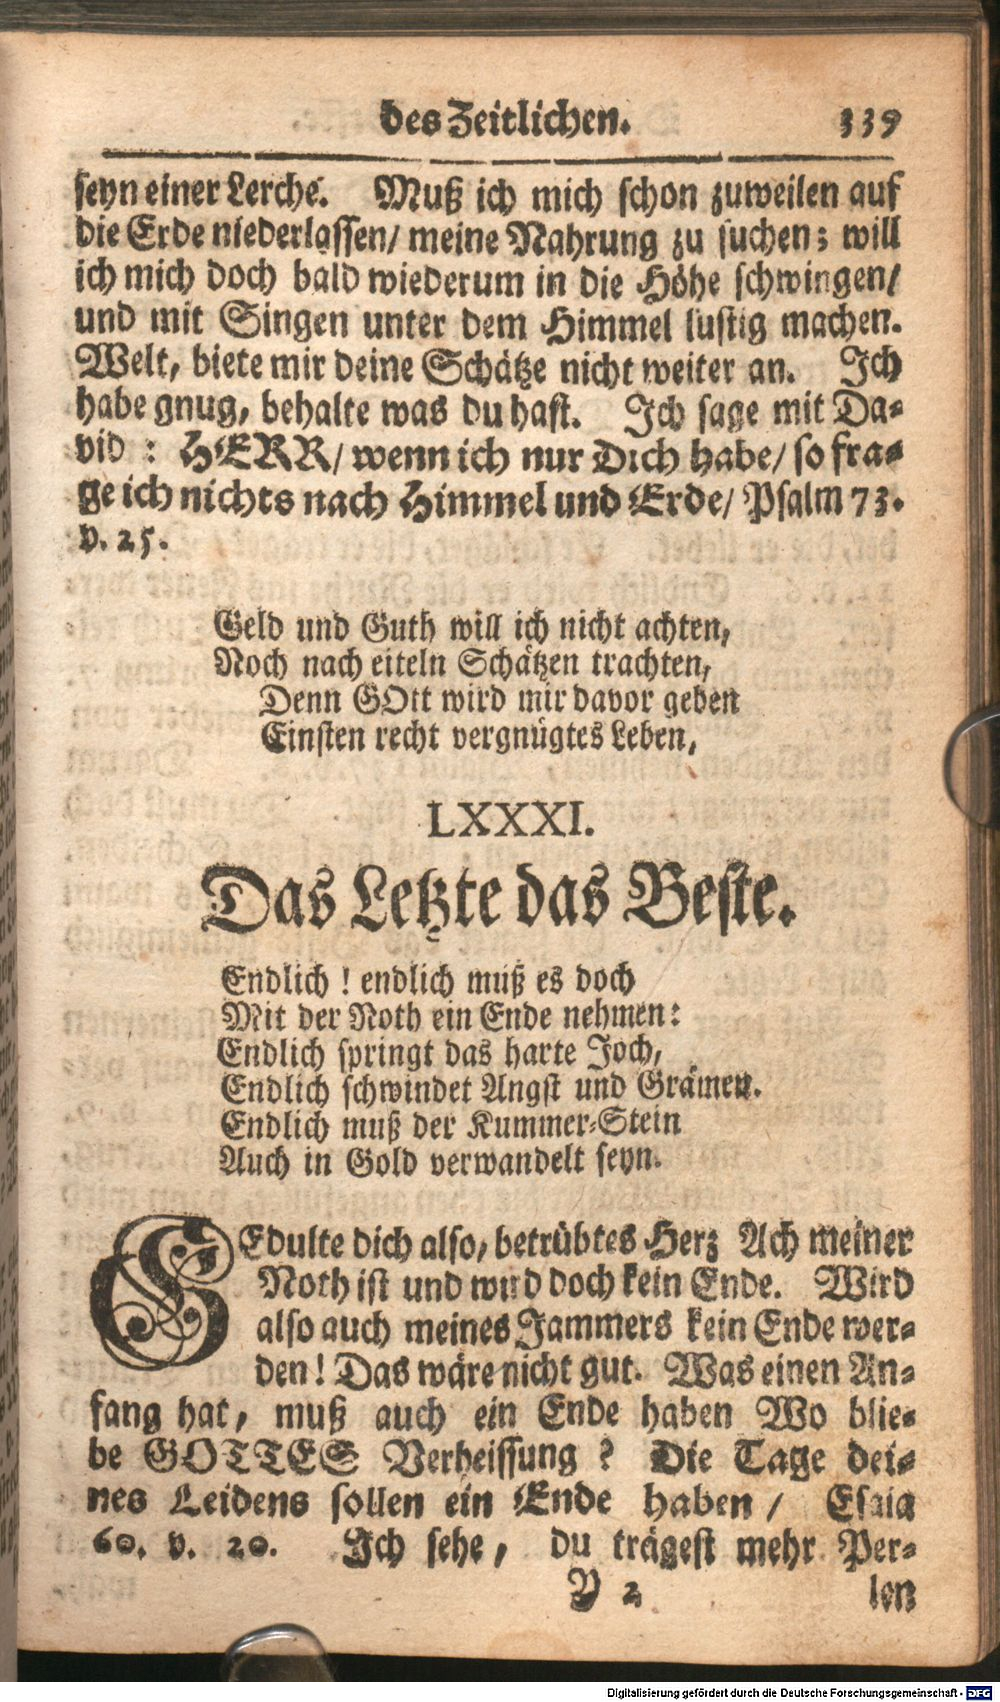 des Zeitlichen. 339
seyn einer Lerche. Muß ich mich schon zuweilen auf
die Erde niederlassen/ meine Nahrung zu suchen; will
ich mich doch bald wiederum in die Höhe schwingen/
und mit Singen unter dem Himmel lustig machen.
Welt, biete mir deine Schätze nicht weiter an. Ich
habe gnug, behalte was du hast. Ich sage mit Da-
vid : HERR/ wenn ich nur Dich habe/ so fra-
ge ich nichts nach Himmel und Erde/ Psalm 73.
v. 25.
Geld und Guth will ich nicht achten,
Noch nach eiteln Schätzen trachten,
Denn GOtt wird mir davor geben
Einsten recht vergnügtes Leben,
LXXXI.
Das Letzte das Beste.
Endlich ! endlich muß es doch
Mit der Noth ein Ende nehmen:
Endlich springt das harte Joch,
Endlich schwindet Angst und Grämen.
Endlich muß der Kummer-Stein
Auch in Gold verwandelt seyn.
GEdulte dich also, betrübtes Herz Ach meiner
Noth ist und wird doch kein Ende. Wird
also auch meines Jammers kein Ende wer-
den! Das wäre nicht gut. Was einen An-
fang hat, muß auch ein Ende haben Wo blie-
be GOTTES Verheissung ? Die Tage dei-
nes Leidens sollen ein Ende haben / Esaia
60. v. 20. Ich sehe, du trägest mehr Per-
Y 2 len
Digitalisierung gefördert durch die Deutsche Forschungsgemeinschaft - DFG